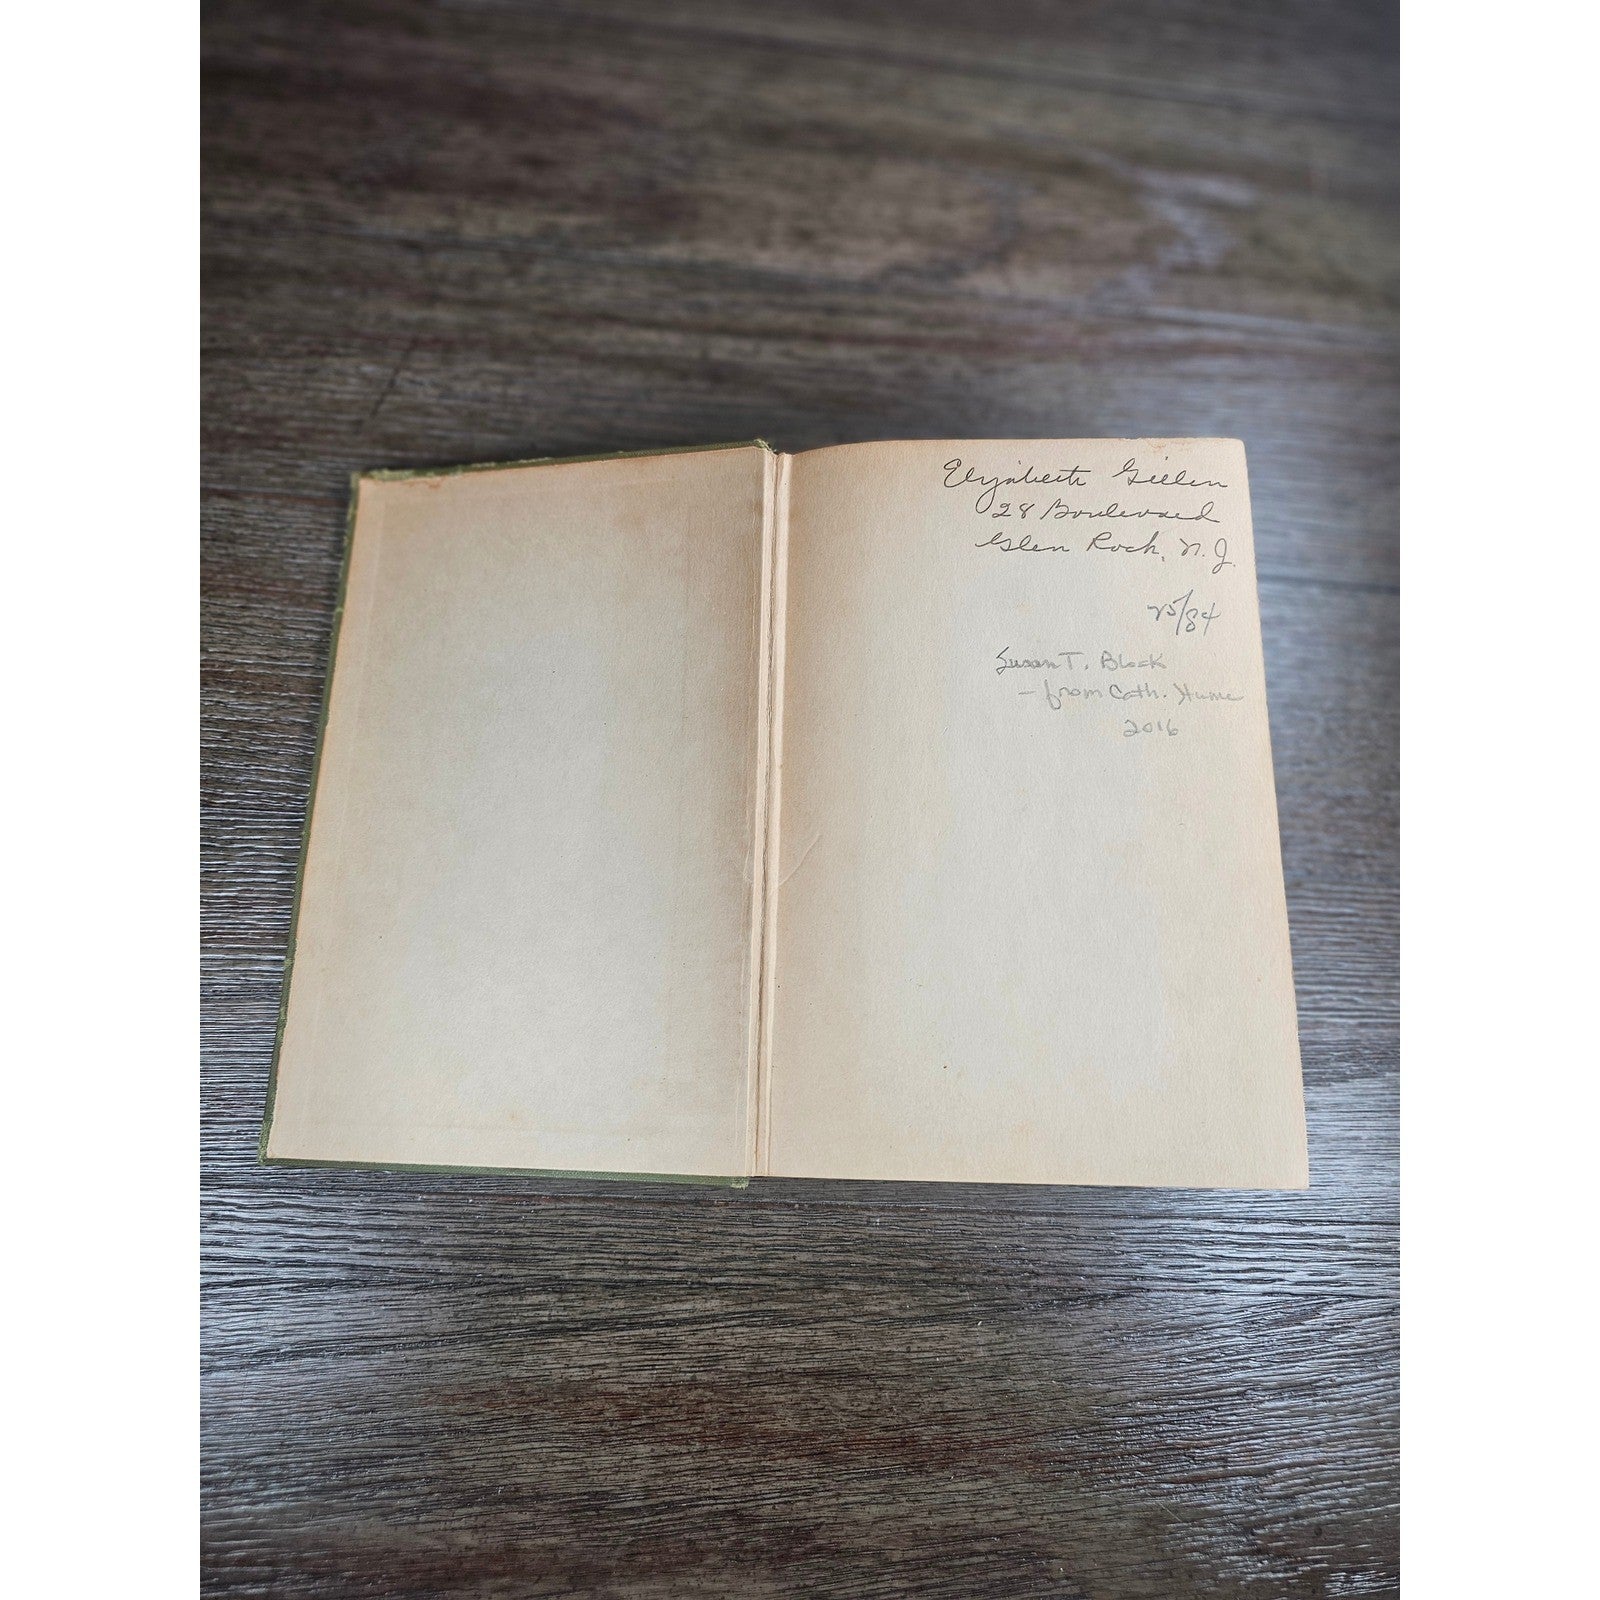 Elizabeth Gillen
28 Boulevard
Glen Rock, N.J.
25/84
Susan T. Block
- from Cath. Hume
2016